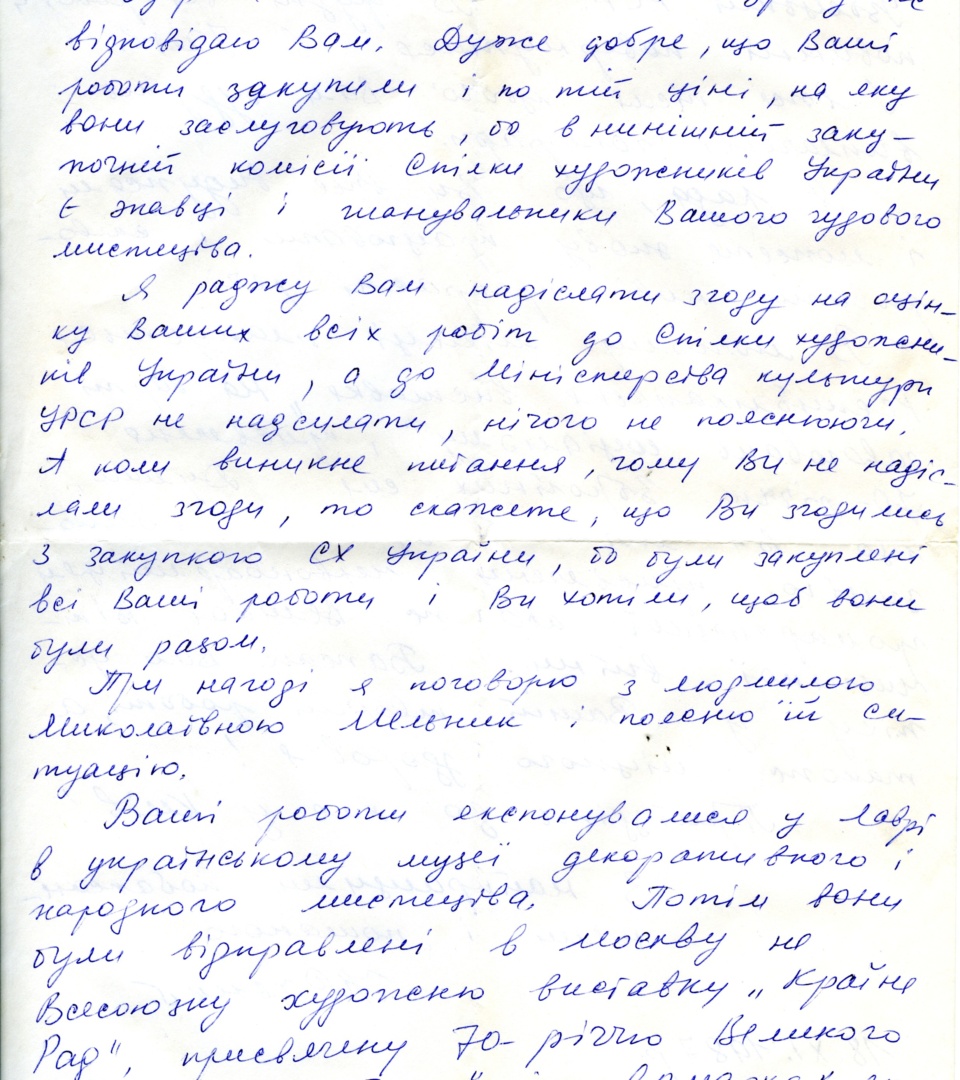 відповідаю Вам. Дуже добре, що Ваші
роботи закупили і по тій ціні, на яку
вони заслуговують, бо в нинішній заку-
почній комісії Спілки художників України
Є знавці і шанувальники Вашого чудового
мистецтва.
Я раджу Вам надіслати згоду на оцін-
ку Ваших всіх робіт до Спілки художни-
ків України, а до Міністерства культури
УРСР не надсилати, нічого не пояснюючи.
А коли виникне питання, чому Ви не надіс-
лали згоди, то скажете, що Ви згодились
з закупкою СХ України, бо були закуплені
всі Ваші роботи і Ви хотіли, щоб вони
були разом.
При нагоді я поговорю з Людмилою
Миколаївною Мельник і поясню їй си-
туацію.
Ваші роботи експонувалися у Лаврі
в українському музеї декоративного і
народного мистецтва. Потім вони
були відправлені в Москву на
Всесоюзну художню виставку „Країна
Рад", присвячену 70-річчю Великого